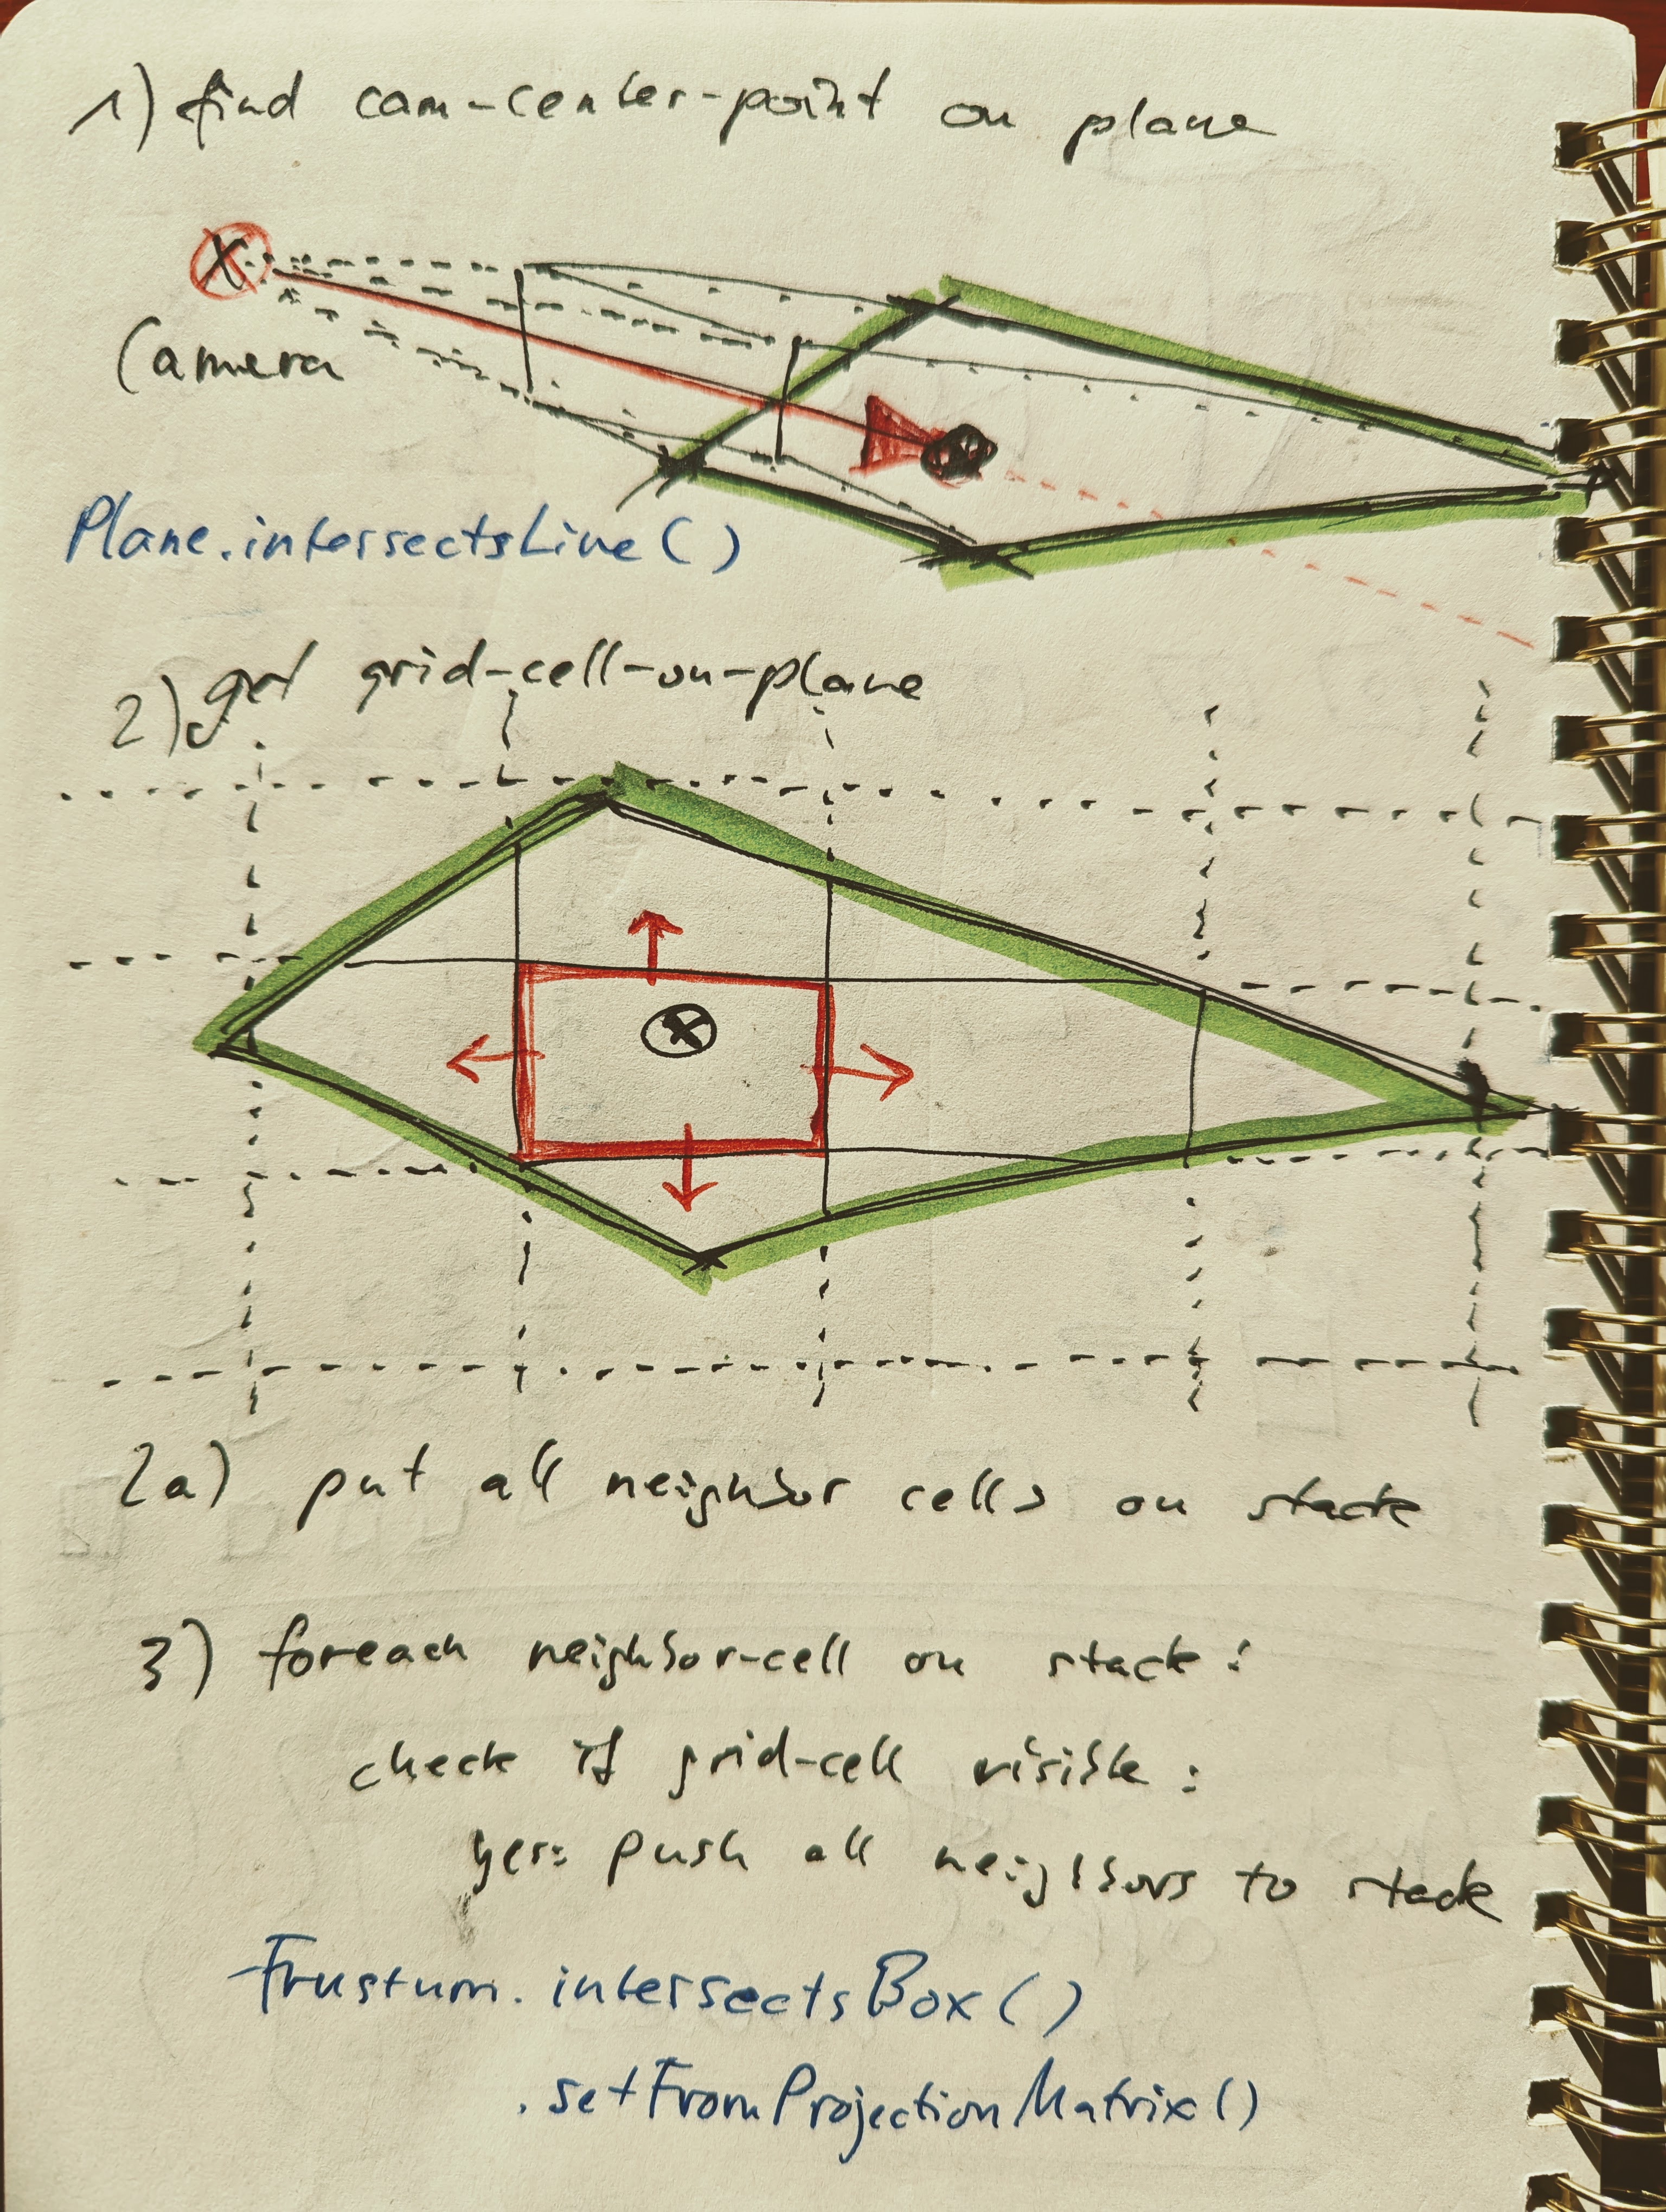 1) find cam-center-point on plane
Camera
Plane.intersectsLine()
2) get grid-cell-on-plane
2a) put all neighbor cells on stack
3) foreach neighbor-cell on stack:
check if grid-cell visible:
yes: push all neighbors to stack
Frustum.intersectsBox()
.setFromProjectionMatrix()